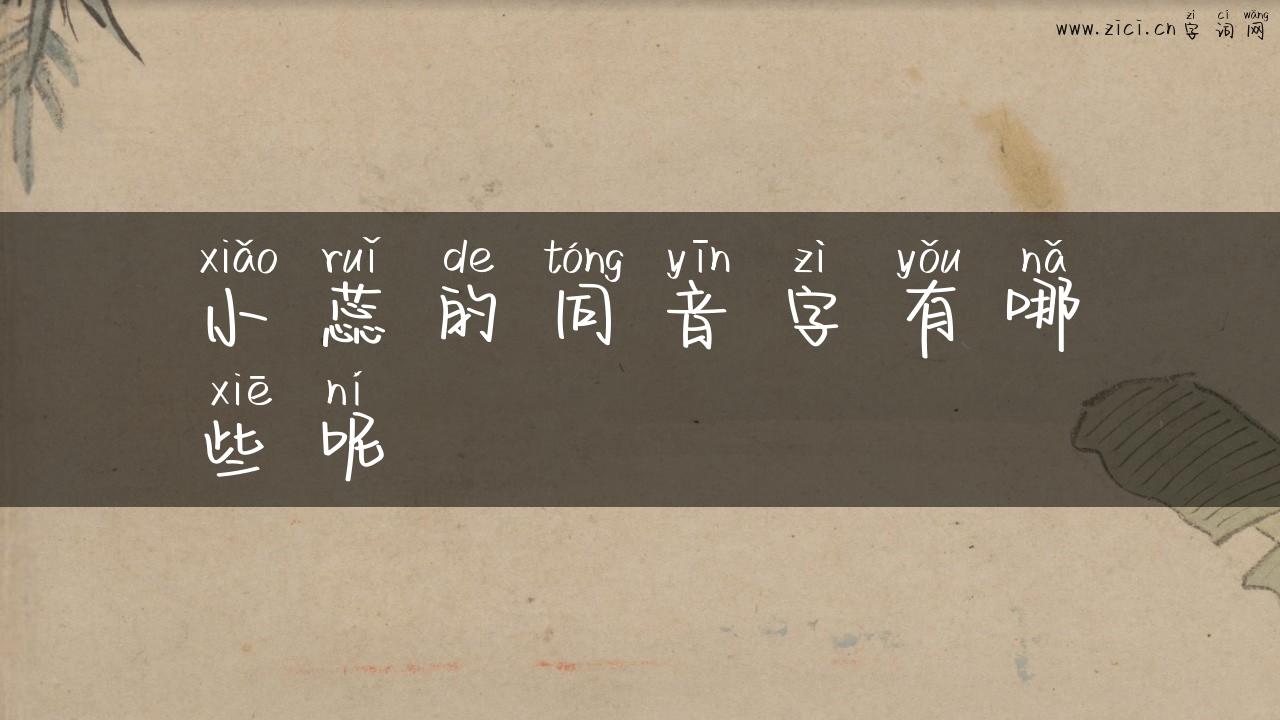 zì cí wǎng
www.zici.cn 字词网
xiǎo ruǐ de tóng yīn zì yǒu nǎ
小蕊的同音字有哪
xiē ní
些呢